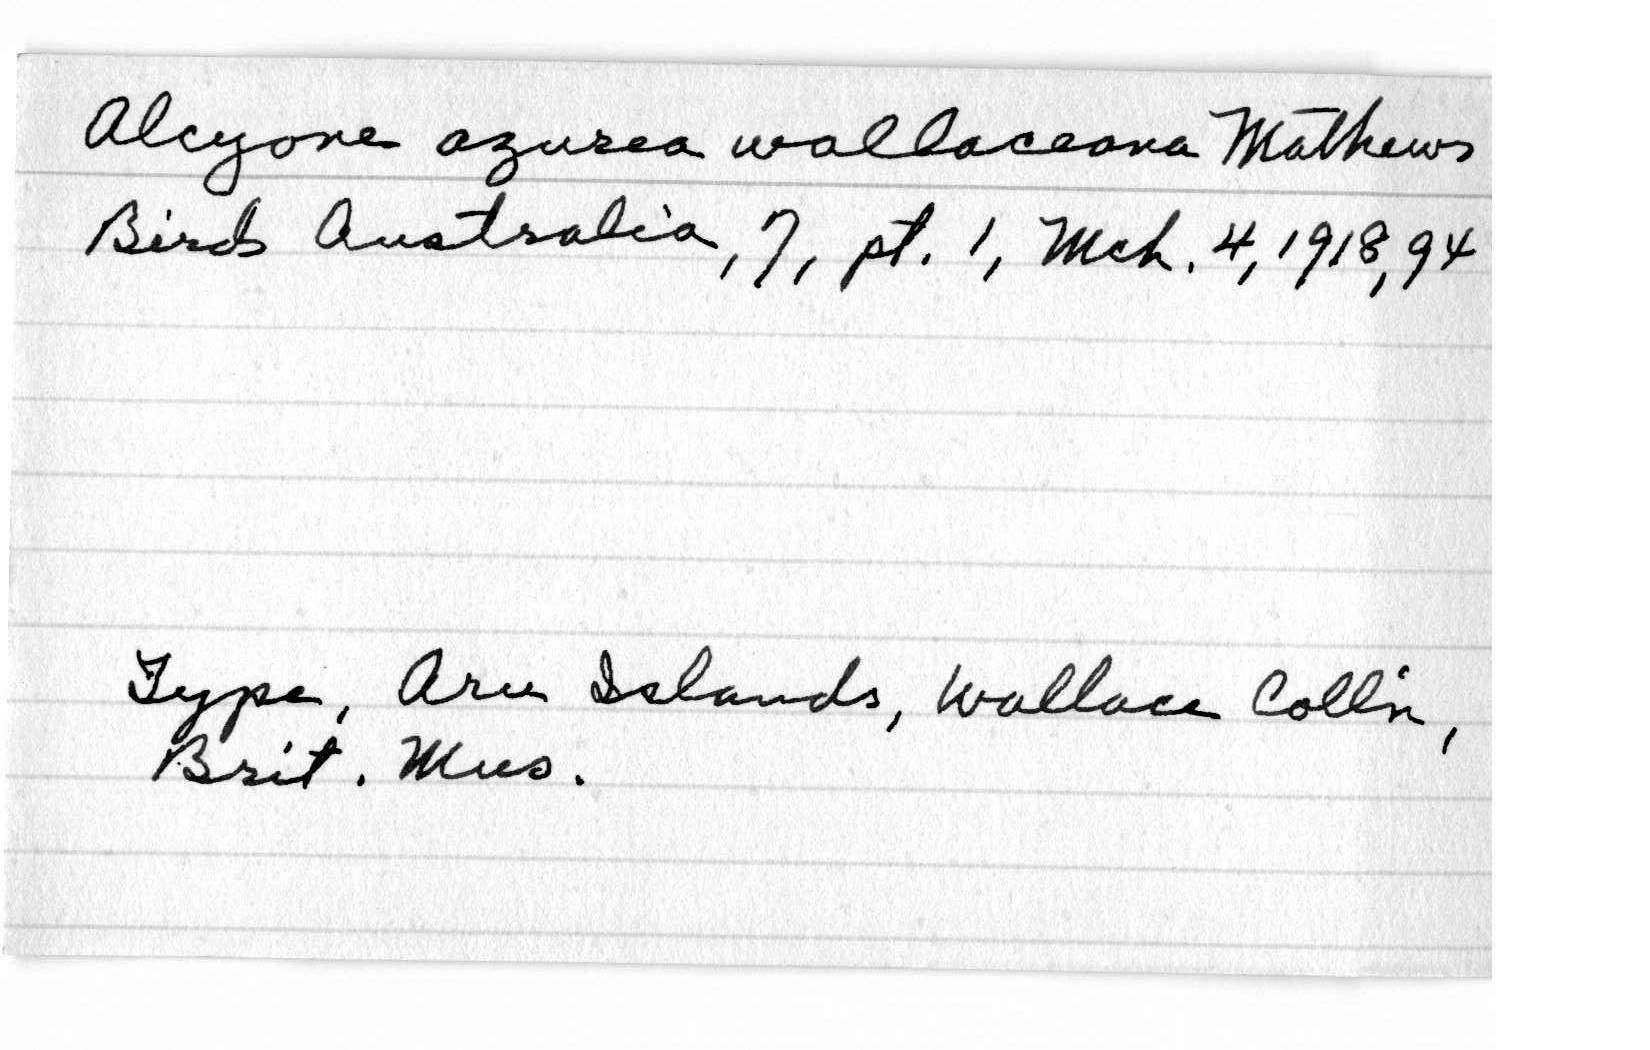 Alcyone azurea wallaceana Mathews
Birds Australia, 7, pt. 1, Mch. 4, 1918, 94
Type, Aru Islands, Wallace Coll'n,
Brit. Mus.